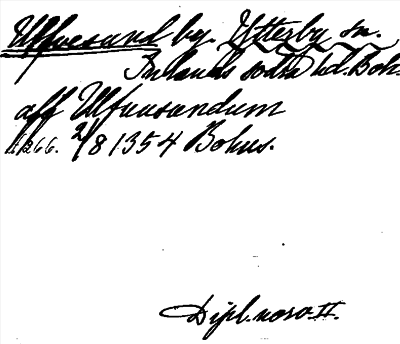 Ulfvesund by. Ytterby sn.
Inlands södra hd. Boh.
aff Ulfuusandum
1266. 2/8 1354 Bohus.
Dipl. norv. II.